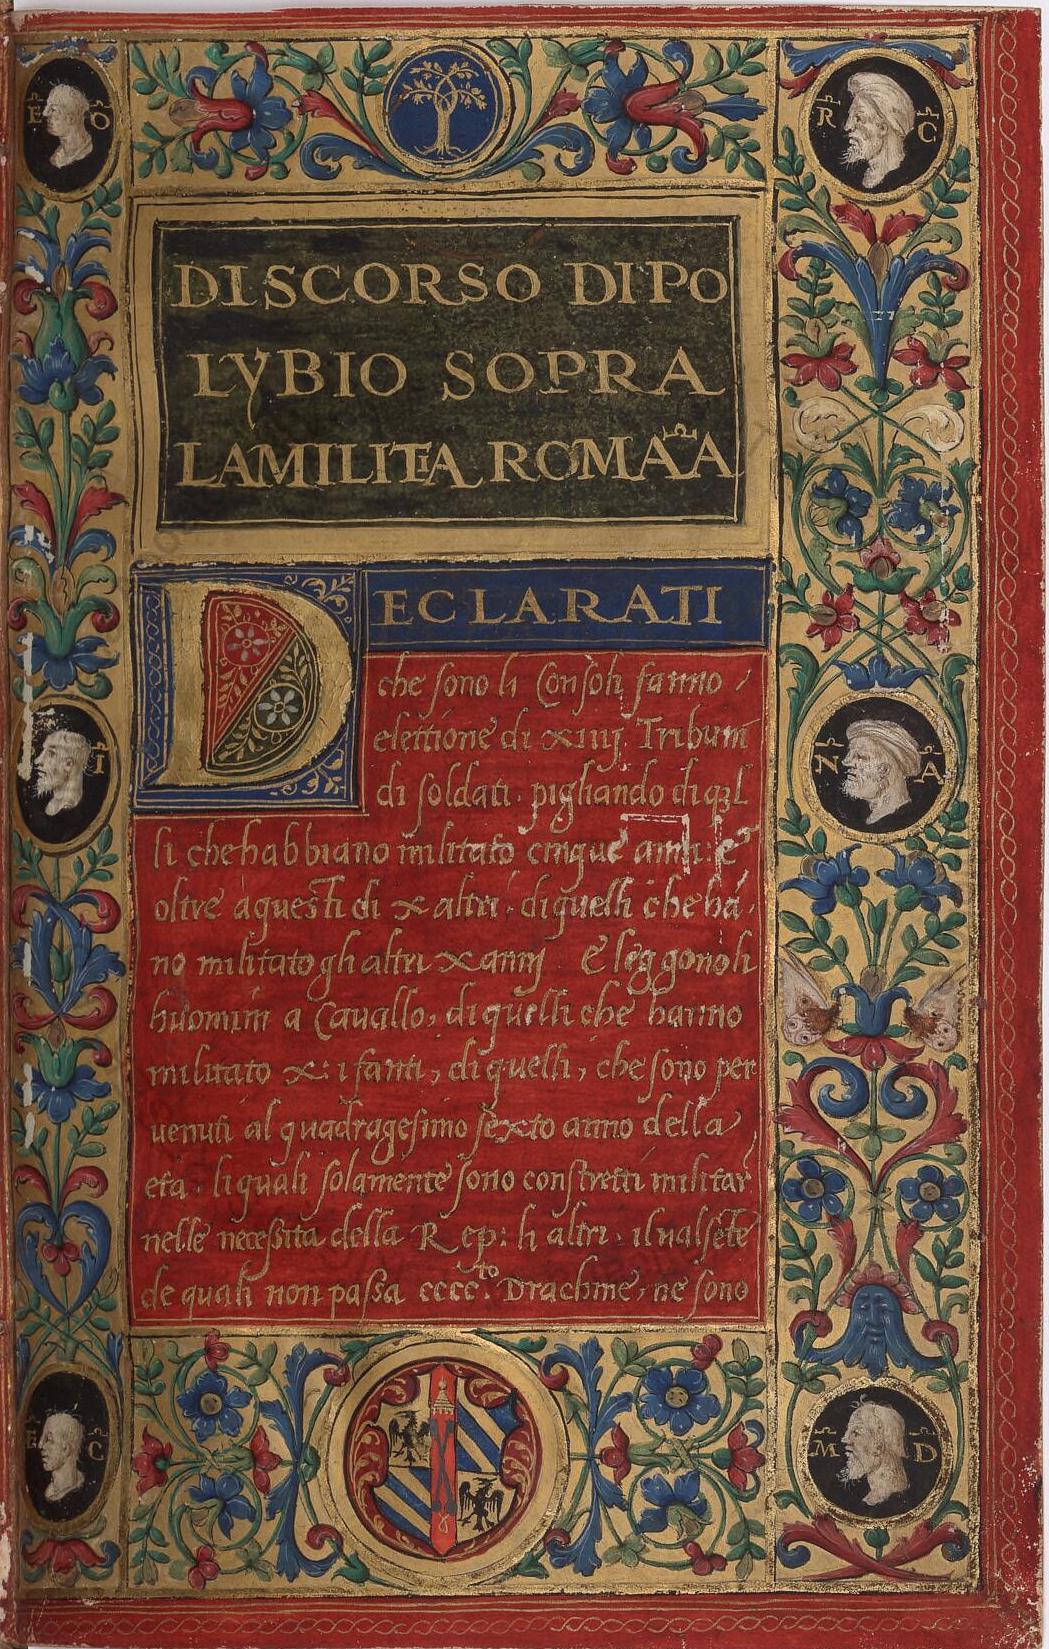 E O
R C
DISCORSO DI PO
LYBIO SOPRA
LA MILITIA ROMANA
DECLARATI
che sono li Consoli fanno
elettione di xiiij Tribuni
di soldati. pigliando di q̃l
li che habbiano militato cinque anni: é
oltre à questi di x altri, di quelli che hã,
no militato gli altri x annj E leggono li
huomini a Cavallo, di quelli che hanno
militato x: i fanti, di quelli, che sono per
venuti al quadragesimo sexto anno della
età. li quali solamente sono constretti militar
nelle necessita della Rep: li altri. il valsẽte
de quali non passa cccc.to Drachme, ne sono
I
N A
E C
M D